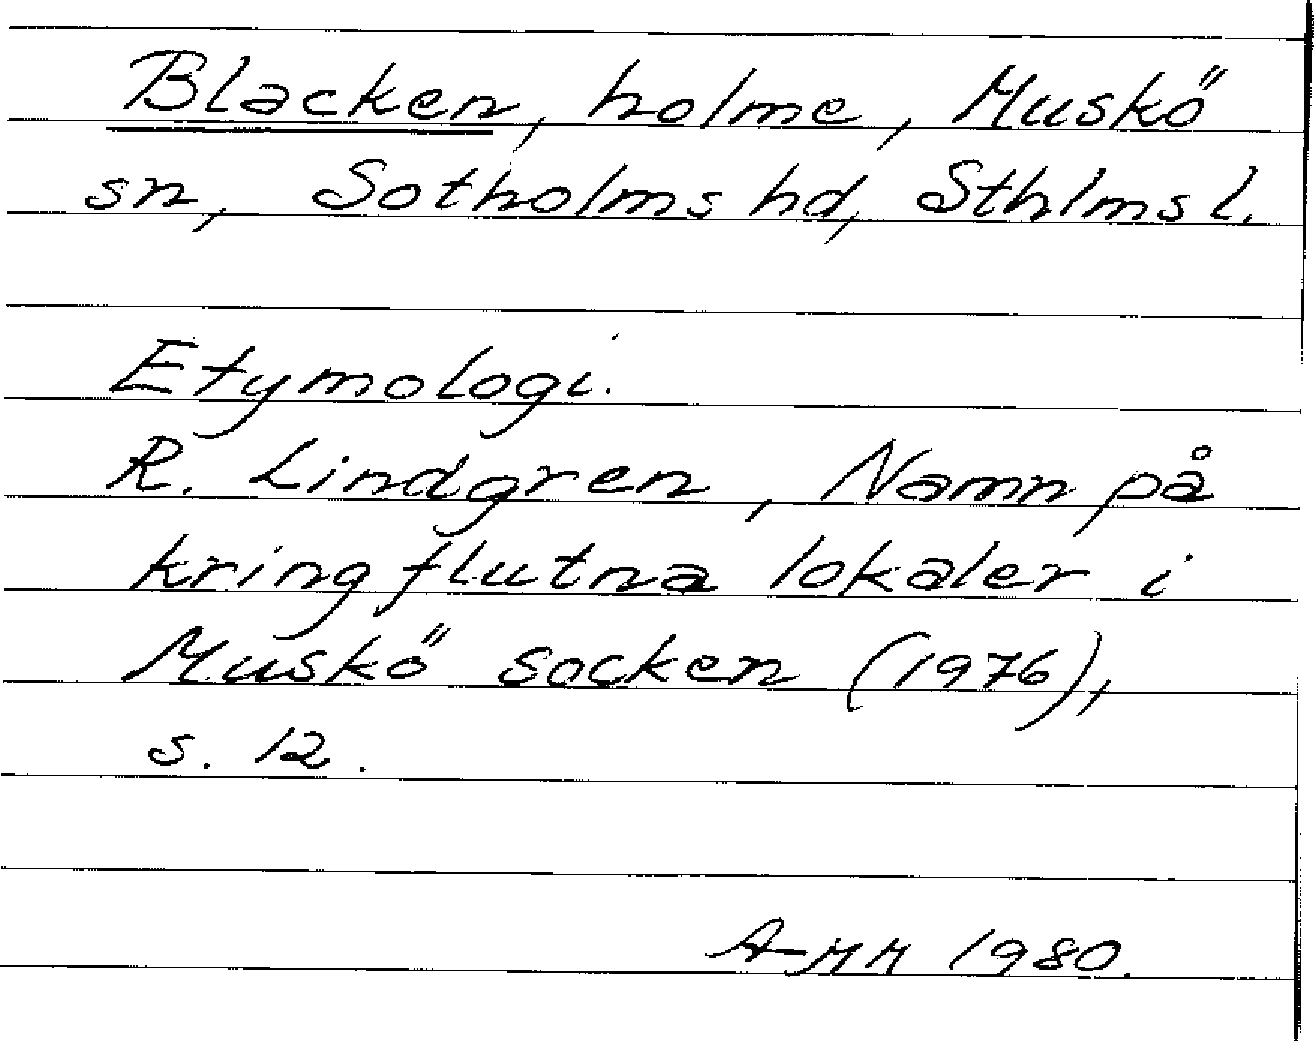 Blacken, holme, Muskö
sn, Sotholms hd, Sthlms l.
Etymologi.
R. Lindgren, Namn på
kringflutna lokaler i
Muskö socken (1976),
s. 12.
A-MH 1980.